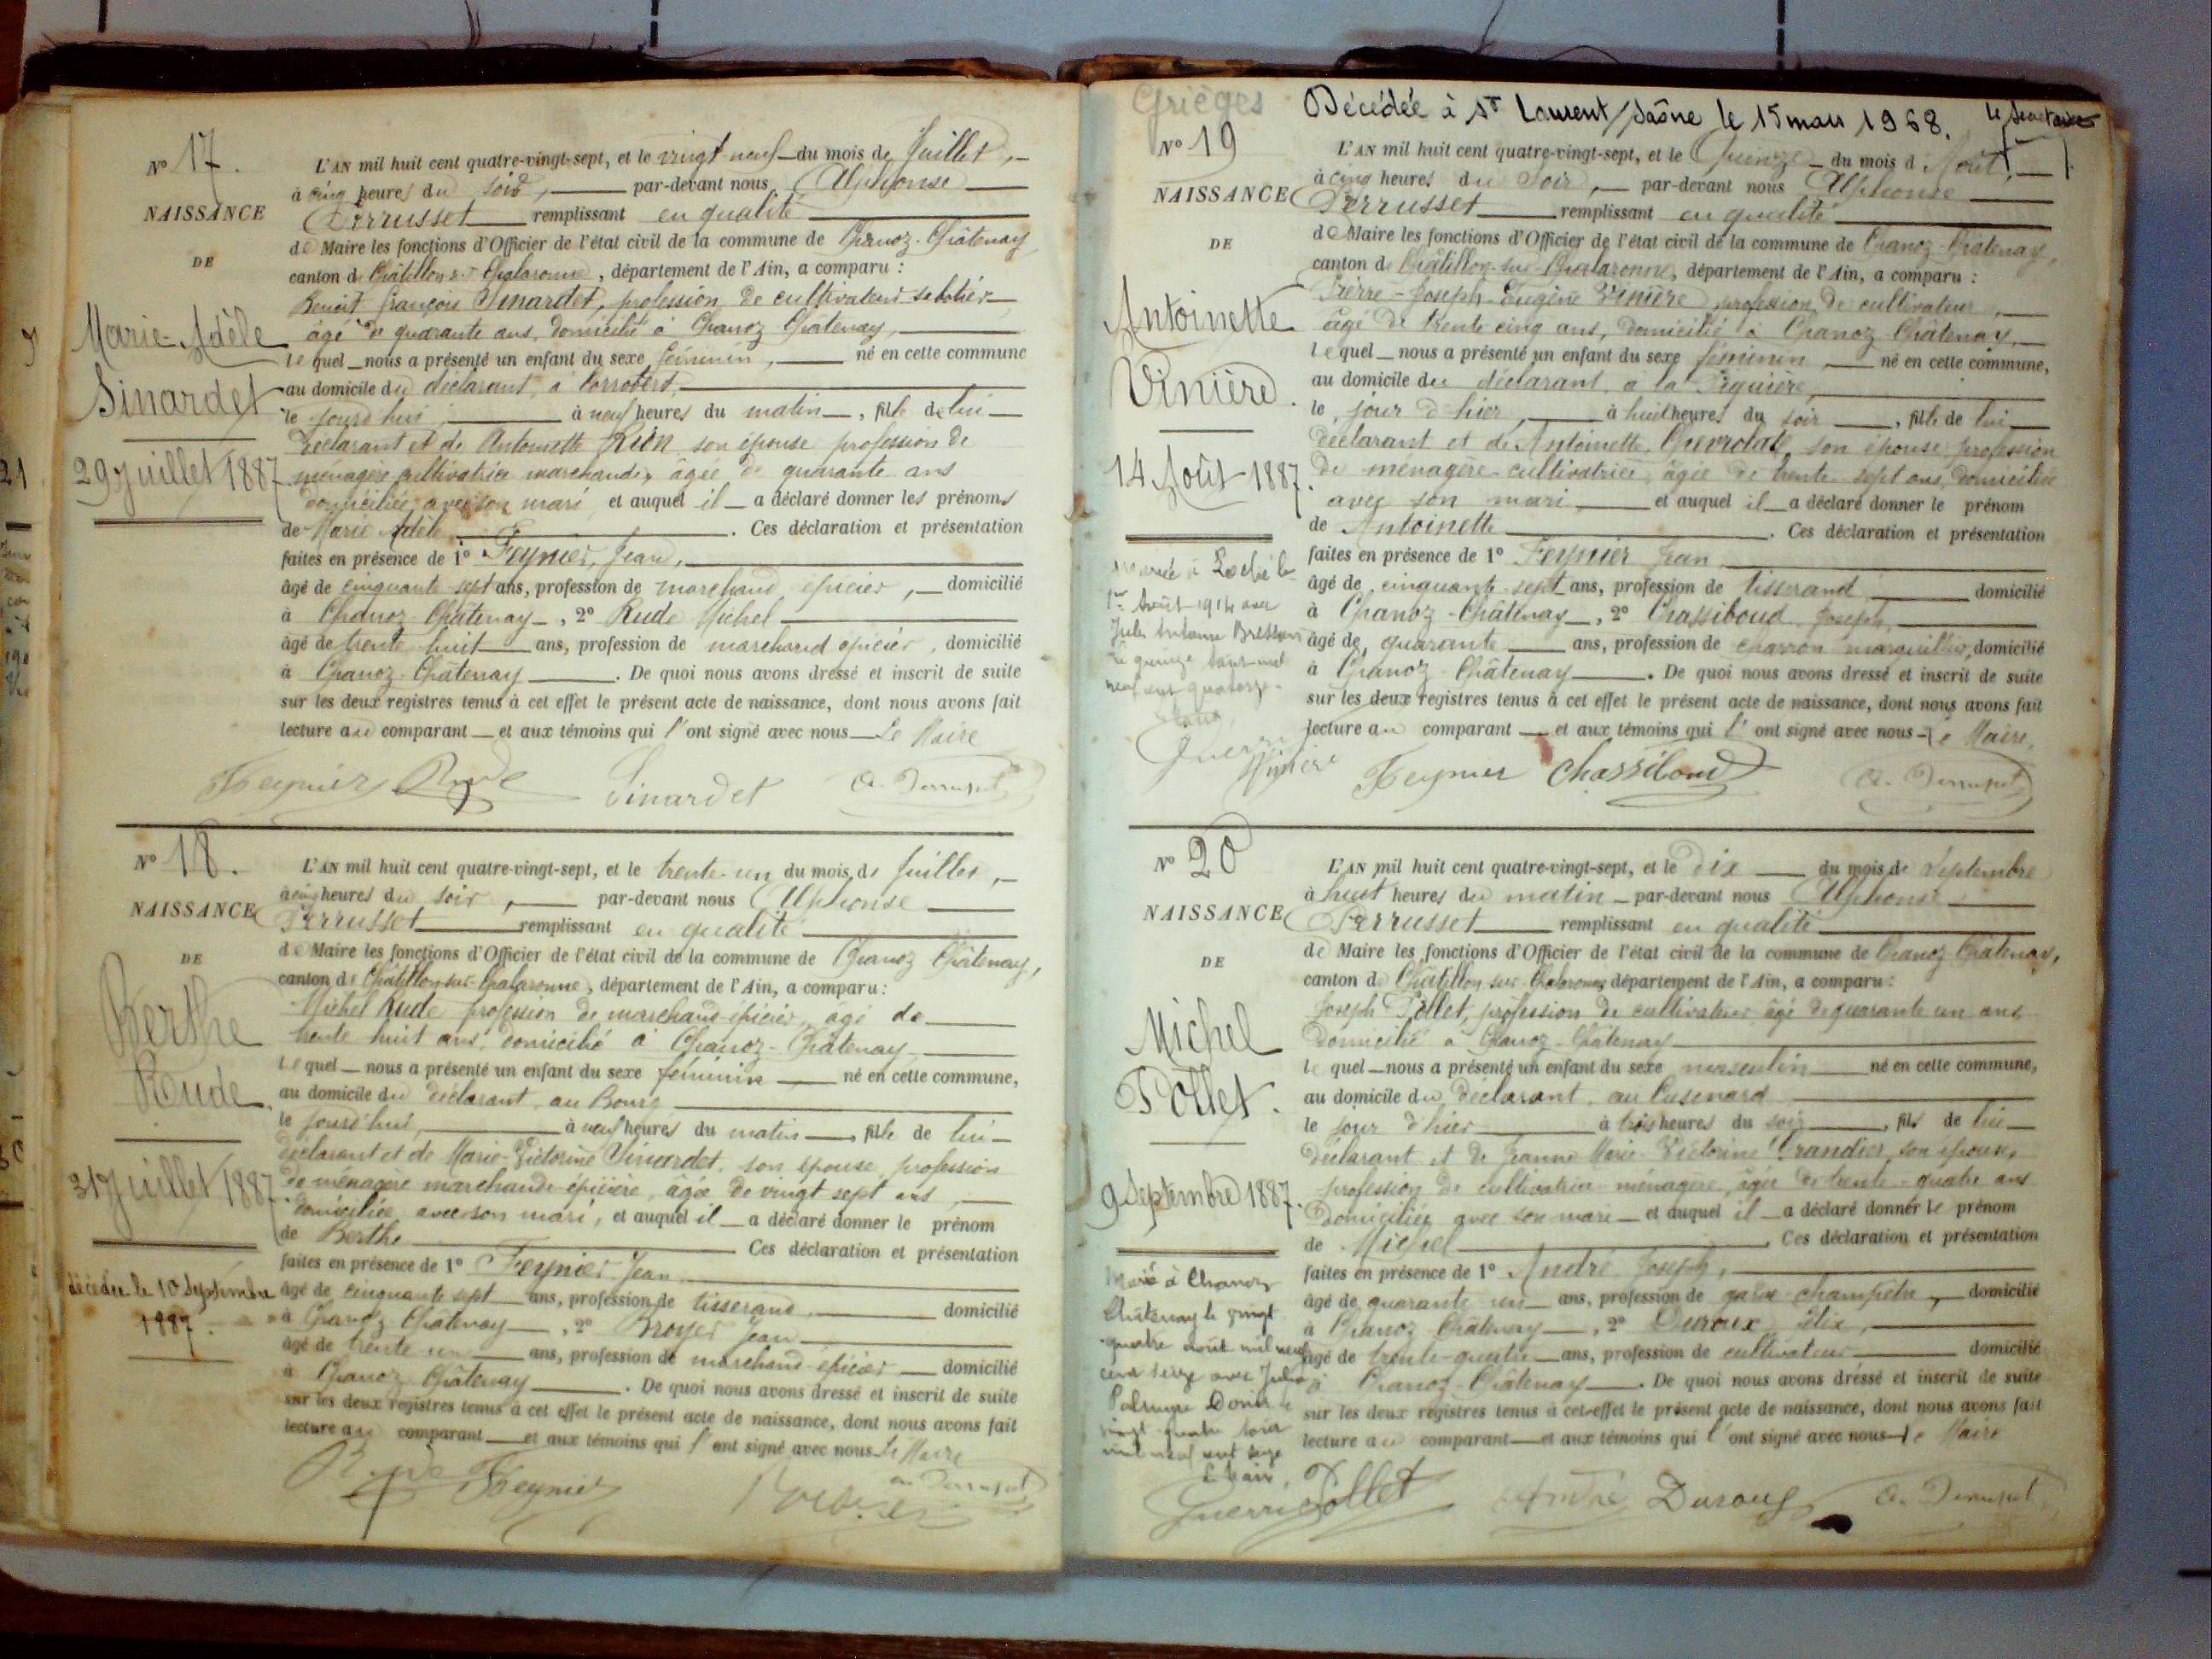 No 17.
NAISSANCE
DE
Marie-Adèle
Sinardet
29 Juillet 1887
L'AN mil huit cent quatre-vingt-sept, et le vingt neuf du mois de Juillet,
à cinq heures du soir, par-devant nous Alphonse
Perrusset remplissant en qualité
de Maire les fonctions d'Officier de l'état civil de la commune de Chanoz-Châtenay
canton de Châtillon-s-Chalaronne, département de l'Ain, a comparu :
Benoit François Sinardet, profession de cultivateur sabotier
âgé de quarante ans, domicilié à Chanoz Châtenay,
lequel nous a présenté un enfant du sexe féminin, né en cette commune
au domicile du déclarant, à
le jourd'hui, à neuf heures du matin, fille de lui
déclarant et de Antoinette son épouse profession de
ménagère cultivatrice marchande, âgée de quarante ans
domiciliée avec son mari et auquel il a déclaré donner les prénoms
de Marie Adèle. Ces déclaration et présentation
faites en présence de 1° Feynier, Jean,
âgé de cinquante sept ans, profession de marchand épicier, domicilié
à Chanoz Châtenay, 2° Rude Michel
âgé de trente huit ans, profession de marchand épicier, domicilié
à Chanoz-Châtenay. De quoi nous avons dressé et inscrit de suite
sur les deux registres tenus à cet effet le présent acte de naissance, dont nous avons fait
lecture au comparant et aux témoins qui l'ont signé avec nous Le Maire
Feynier Rude Sinardet A. Perrusset
No 18.
NAISSANCE
DE
Berthe
Rude.
31 Juillet 1887
décédée le 10 Septembre
1887.
L'AN mil huit cent quatre-vingt-sept, et le trente-un du mois de Juillet,
à cinq heures du soir, par-devant nous Alphonse
Perrusset remplissant en qualité
de Maire les fonctions d'Officier de l'état civil de la commune de Chanoz Châtenay,
canton de Châtillon-sur-Chalaronne, département de l'Ain, a comparu :
Michel Rude profession de marchand-épicier, âgé de
trente huit ans, domicilié à Chanoz-Châtenay
lequel nous a présenté un enfant du sexe féminin né en cette commune,
au domicile du déclarant au Bourg
le jourd'hui, à neuf heures du matin, fille de lui
déclarant et de Marie-Victorine Sinardet, son épouse, profession
de ménagère marchande épicière, âgée de vingt sept ans,
domiciliée avec son mari, et auquel il a déclaré donner le prénom
de Berthe Ces déclaration et présentation
faites en présence de 1° Feynier Jean
âgé de cinquante sept ans, profession de tisserand, domicilié
à Chanoz Châtenay, 2° Broyer Jean
âgé de trente un ans, profession de marchand-épicier domicilié
à Chanoz Châtenay. De quoi nous avons dressé et inscrit de suite
sur les deux registres tenus à cet effet le présent acte de naissance, dont nous avons fait
lecture au comparant et aux témoins qui l'ont signé avec nous Le Maire
Rude Feynier Broyer A. Perrusset
Grièges Décédée à St Laurent/Saône le 15 mars 1968. le Secrétaire
No 19
NAISSANCE
DE
Antoinette
Vinière.
14 Août 1887.
mariée à Loché le
1er Août 1914 avec
Jules Antoine Bressan
Le quinze Août mil
neuf cent quatorze
Le Maire,
Guerry
L'AN mil huit cent quatre-vingt-sept, et le Quinze du mois d'Août,
à cinq heures du Soir, par-devant nous Alphonse
Perrusset remplissant en qualité
de Maire les fonctions d'Officier de l'état civil de la commune de Chanoz-Châtenay,
canton de Châtillon-sur-Chalaronne, département de l'Ain, a comparu :
Pierre-Joseph-Eugène Vinière profession de cultivateur,
âgé de trente cinq ans, domicilié à Chanoz Châtenay,
lequel nous a présenté un enfant du sexe féminin né en cette commune,
au domicile du déclarant, à la
le jour d'hier, à huit heures du soir, fille de lui
déclarant et de Antoinette son épouse, profession
de ménagère-cultivatrice, âgée de trente sept ans, domiciliée
avec son mari et auquel il a déclaré donner le prénom
de Antoinette. Ces déclaration et présentation
faites en présence de 1° Feynier Jean
âgé de cinquante sept ans, profession de tisserand domicilié
à Chanoz-Châtenay, 2° Chassiboud Joseph,
âgé de quarante ans, profession de charron marguillier, domicilié
à Chanoz-Châtenay. De quoi nous avons dressé et inscrit de suite
sur les deux registres tenus à cet effet le présent acte de naissance, dont nous avons fait
lecture au comparant et aux témoins qui l'ont signé avec nous Le Maire,
Vinière Feynier Chassiboud A. Perrusset
No 20
NAISSANCE
DE
Michel
Pollet.
9 Septembre 1887.
Marié à Chanoz
Châtenay le vingt
quatre août mil neuf
cent seize avec Julie
Palmyre Donier le
vingt quatre août
mil neuf cent seize
Le Maire,
Guerry
L'AN mil huit cent quatre-vingt-sept, et le Dix du mois de Septembre
à huit heures du matin par-devant nous Alphonse
Perrusset remplissant en qualité
de Maire les fonctions d'Officier de l'état civil de la commune de Chanoz-Châtenay,
canton de Châtillon sur Chalaronne, département de l'Ain, a comparu :
Joseph Pollet, profession de cultivateur âgé de quarante un ans,
domicilié à Chanoz-Châtenay
lequel nous a présenté un enfant du sexe masculin né en cette commune,
au domicile du déclarant, au
le jour d'hier à trois heures du soir, fils de lui
déclarant et de Jeanne Marie Victorine Grandier, son épouse,
profession de cultivatrice ménagère, âgée de trente-quatre ans
domiciliée avec son mari et auquel il a déclaré donner le prénom
de Michel. Ces déclaration et présentation
faites en présence de 1° André Joseph,
âgé de quarante un ans, profession de garde-champêtre, domicilié
à Chanoz Châtenay, 2° Duroux Félix,
âgé de trente-quatre ans, profession de cultivateur domicilié
à Chanoz-Châtenay. De quoi nous avons dressé et inscrit de suite
sur les deux registres tenus à cet effet le présent acte de naissance, dont nous avons fait
lecture au comparant et aux témoins qui l'ont signé avec nous Le Maire
Pollet André Duroux A. Perrusset